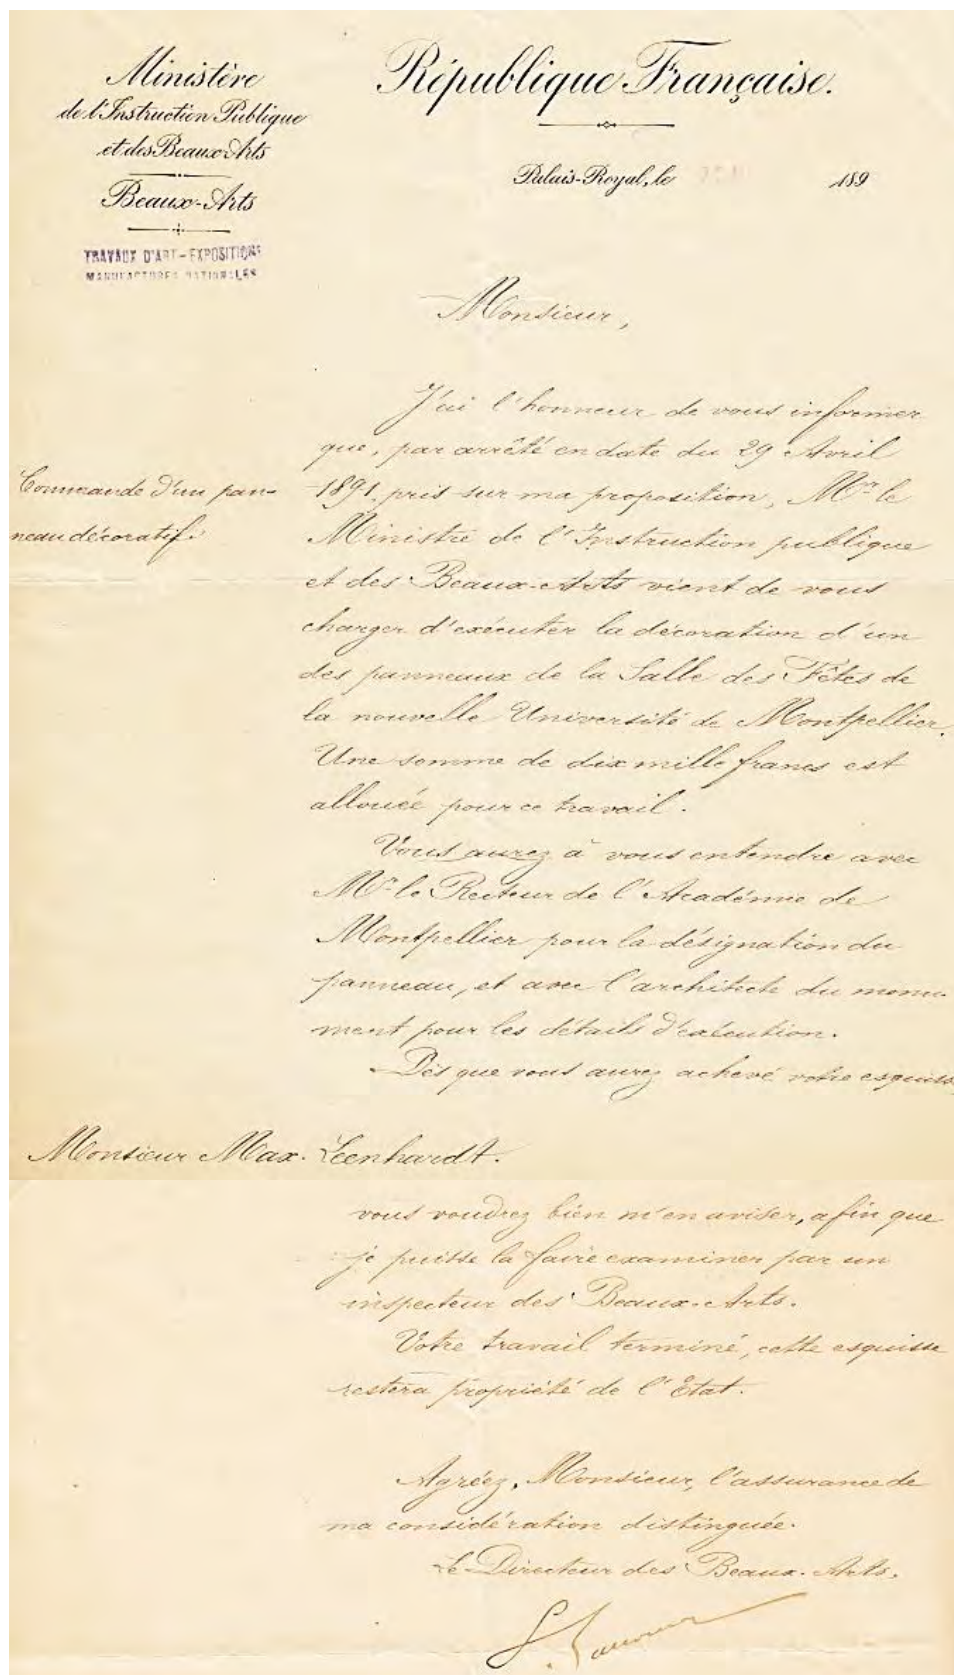 Ministère
de l'Instruction Publique
et des Beaux-Arts
Beaux-Arts
TRAVAUX D'ART - EXPOSITIONS
MANUFACTURES NATIONALES
République Française.
Palais-Royal, le 189
Monsieur,
Commande d'un pan-
neau décoratif.
J'ai l'honneur de vous informer
que, par arrêté en date du 29 Avril
1891, pris sur ma proposition, Mr. le
Ministre de l'Instruction publique
et des Beaux-Arts vient de vous
charger d'exécuter la décoration d'un
des panneaux de la Salle des Fêtes de
la nouvelle Université de Montpellier.
Une somme de dix mille francs est
allouée pour ce travail.
Vous aurez à vous entendre avec
Mr. le Recteur de l'Académie de
Montpellier pour la désignation du
panneau, et avec l'architecte du monu-
ment pour les détails d'exécution.
Dès que vous aurez achevé votre esquisse
Monsieur Max. Leenhardt.
vous voudrez bien m'en aviser, afin que
je puisse la faire examiner par un
inspecteur des Beaux-Arts.
Votre travail terminé, cette esquisse
restera propriété de l'Etat.
Agréez, Monsieur, l'assurance de
ma considération distinguée.
Le Directeur des Beaux-Arts.